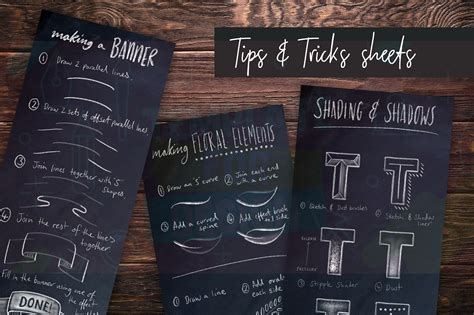 Tips & Tricks sheets
making a BANNER
① Draw 2 parallel lines
② Draw 2 sets of offset parallel lines
③ Join lines together with 'S' shapes
④ Join the rest of the lines together
Fill in the banner using
DONE!
making FLORAL ELEMENTS
① Draw an 'S' curve
② Join each end with a curve
③ Add a curved spine
④ Add effect brush
① Draw a line
② Add
each side
SHADING & SHADOWS
T
T
① Sketch & Dust brushes
② Sketch & Shadow liner
RELEASE
PRESSURE
T
T
③ Stipple Shader
④